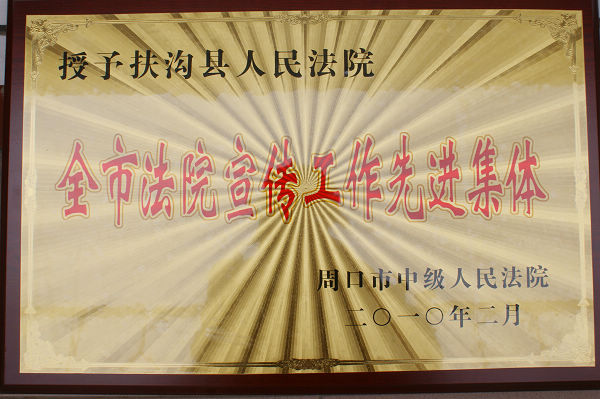 授予扶沟县人民法院
全市法院宣传工作先进集体
周口市中级人民法院
二〇一〇年二月